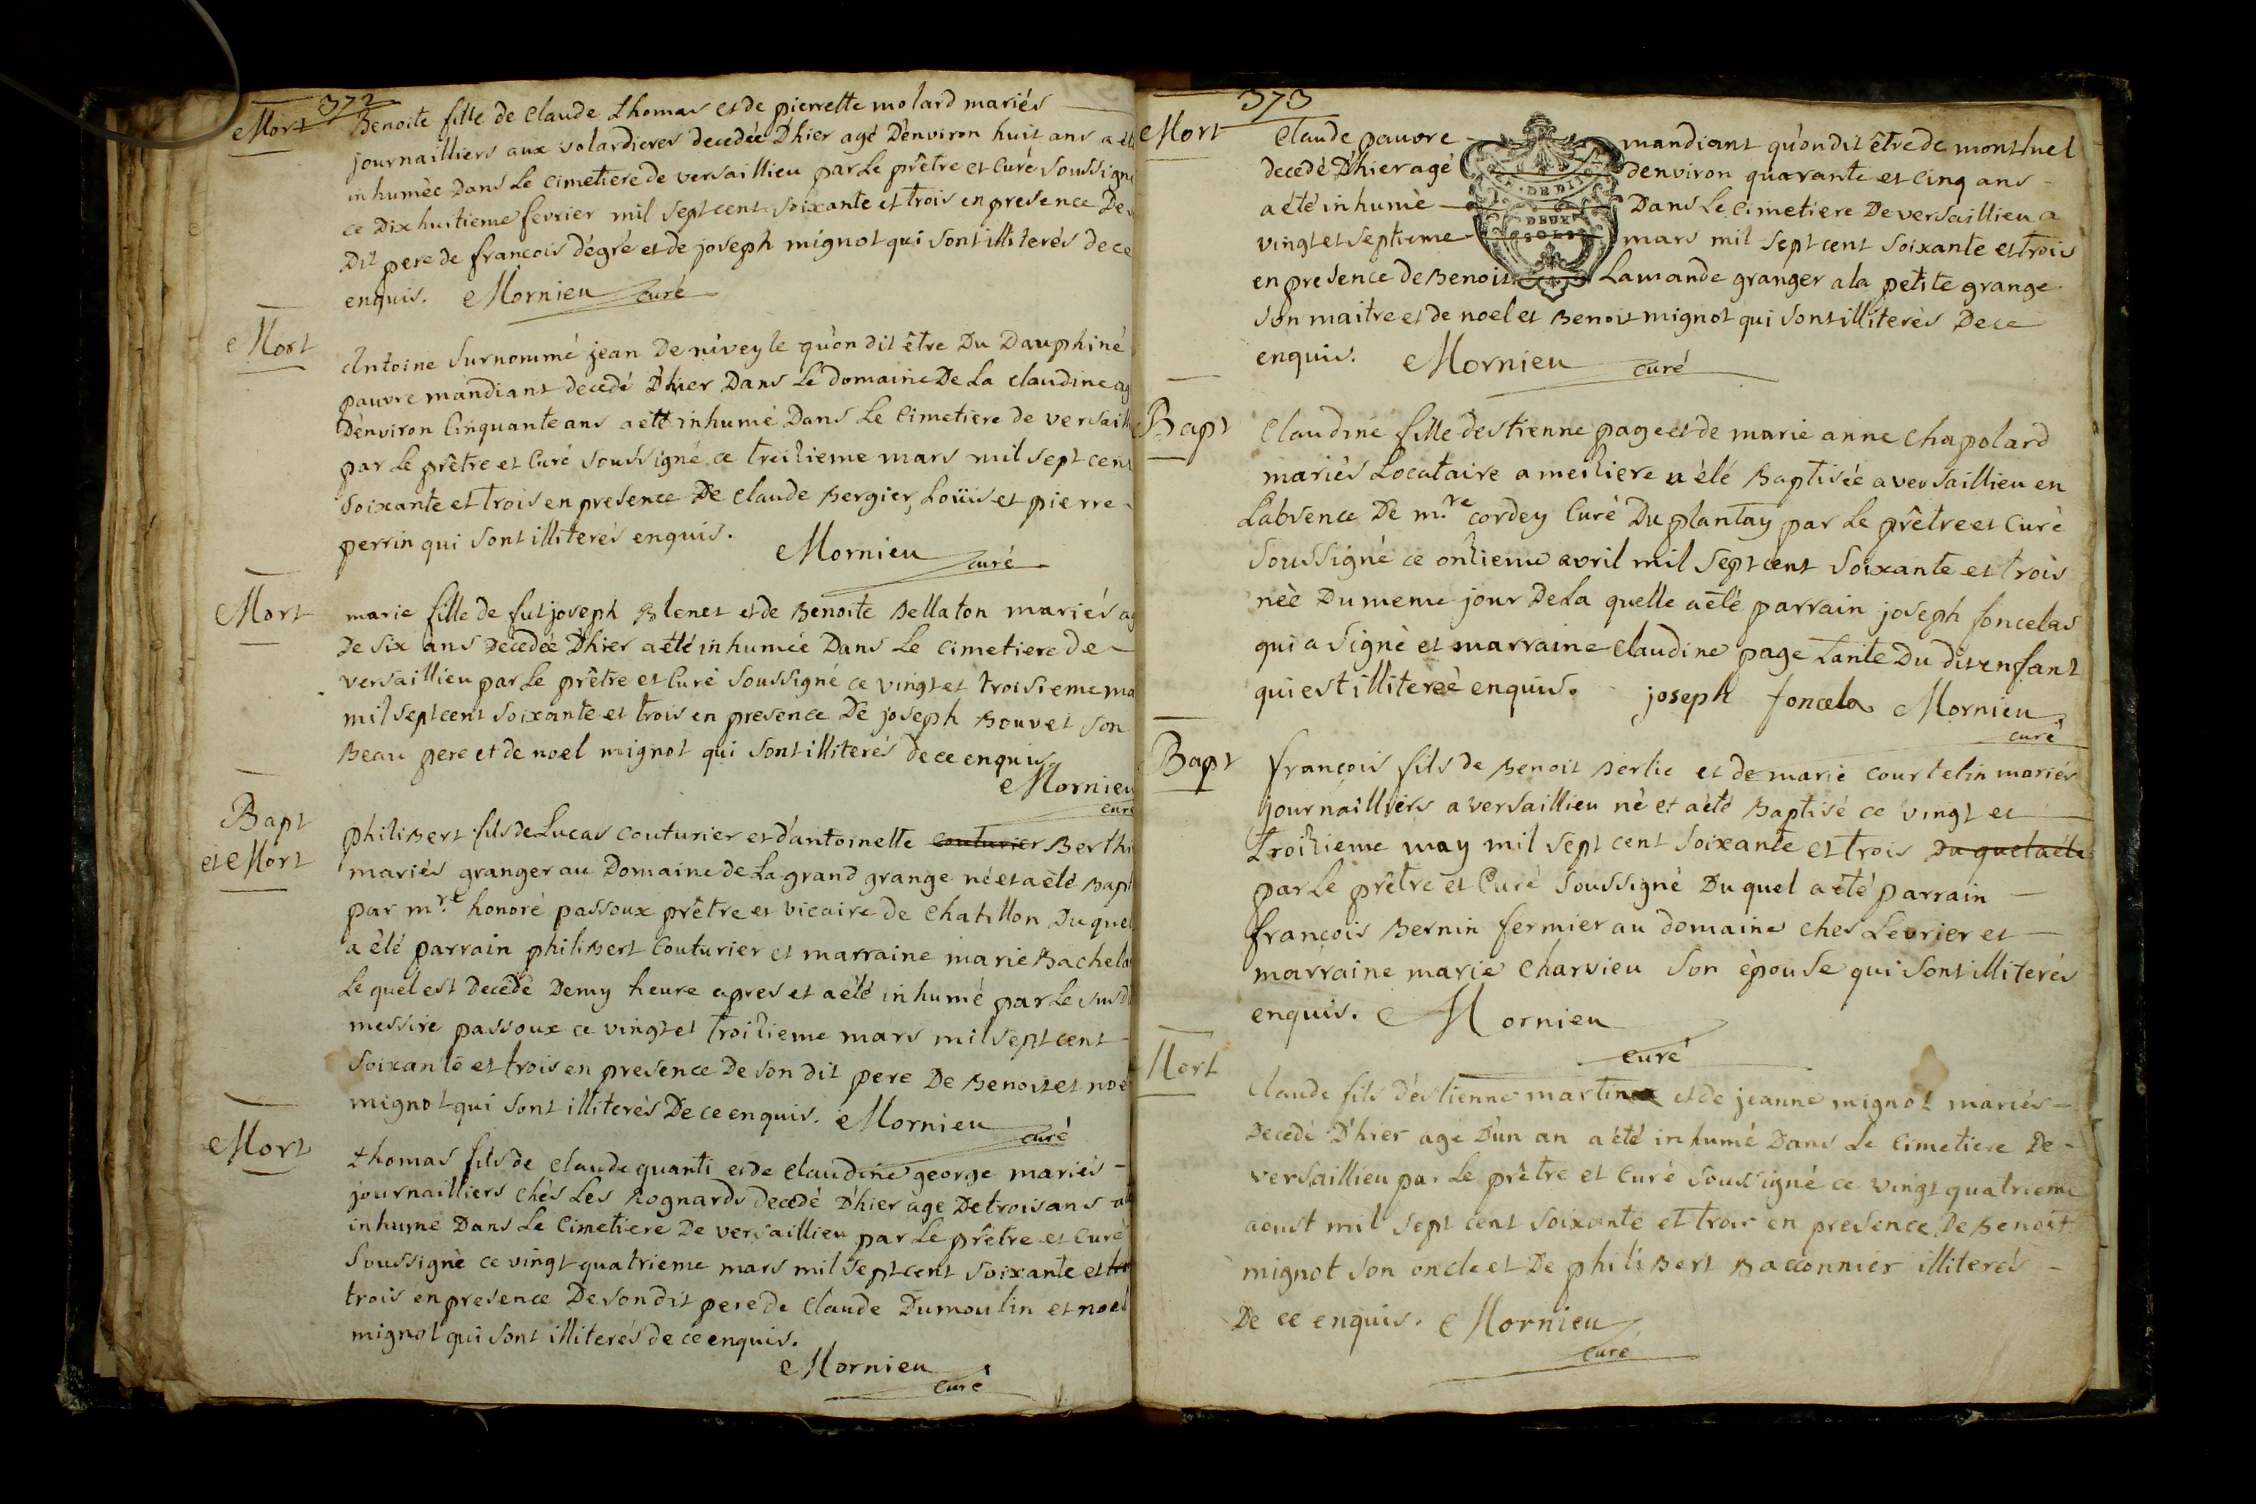 372
Mort
Benoite fille de Claude Thomas et de pierrette molard mariés
journailliers aux volardieres decedée D'hier agé D'environ huit ans a
inhumèe Dans Le Cimetiere de versaillieu par Le prêtre et Curé Soussigné
ce Dix huitieme fevrier mil Sept cent Soixante et trois en presence De
Dit pere de francois dégré et de joseph mignot qui Sont illiterés de ce
enquis. Mornieu curé
Mort
Antoine Surnommé jean De niveyle qu'on dit être Du Dauphiné
pauvre mandiant decedé D'hier Dans Le Domaine De La Claudine
D'environ Cinquante ans a eté inhumé Dans Le Cimetiere de versaill
par Le prêtre et Curé Soussigné ce treizieme mars mil Sept cent
Soixante et trois en presence De Claude Bergier, Loüis et pierre
perrin qui Sont illiterés enquis.
Mornieu curé
Mort
marie fille de fut joseph Blenet et de Benoite Bellaton mariés
De Six ans Decedée D'hier a eté inhumée Dans Le Cimetiere de
versaillieu par Le prêtre et Curé Soussigné ce vingt et troisieme
mil Sept cent Soixante et trois en presence De joseph Bouvet Son
Beau pere et de noel mignot qui Sont illiterés de ce enquis
Mornieu
curé
Bapt
et Mort
philiBert fils de Lucas Couturier et d'antoinette couturier Berthi
mariés granger au Domaine de La grand grange né et a eté Bapt
par mre honoré passoux prêtre et vicaire de Chatillon Du quel
a été parrain philiBert Couturier et marraine marie Bachela
Le quel est Decedé Demy heure apres et a été inhumé par Le susd
messire passoux ce vingt et troizieme mars mil Sept cent
Soixante et trois en presence De Son dit pere De Benoit et noel
mignot qui Sont illiterés De ce enquis. Mornieu
curé
Mort
thomas fils de Claude quanti et de Claudine george mariés
journailliers chés Les Rognards decedé D'hier age De trois ans
inhumé Dans Le Cimetiere De versaillieu par Le prêtre et Curé
Soussigné ce vingt quatrieme mars mil Sept cent Soixante et
trois en presence De Son dit pere de Claude Dumoulin et noel
mignot qui Sont illiterés de ce enquis.
Mornieu
Curé
373
Mort
Claude pauvre mandiant qu'on dit être de montluel
decedé D'hier agé d'environ quarante et Cinq ans
a été inhumé Dans Le Cimetiere De versaillieu a
vingt et Septieme mars mil Sept cent Soixante et trois
en presence de Benoit Lamande granger a la petite grange
DEUX
SOLS
Son maitre et de noel et Benoit mignot qui Sont illiterés De ce
enquis. Mornieu curé
Bapt
Claudine fille destienne page et de marie anne Chapolard
mariés Locataire a meiziere a été Baptisée a versaillieu en
L'absence De mre cordey Curé Du plantay par Le prêtre et Curé
Soussigné ce onzieme avril mil Sept cent Soixante et trois
née Du meme jour De La quelle a été parrain joseph foncelas
qui a Signé et marraine Claudine page tante Du dit enfant
qui est illitereé enquis. joseph foncela Mornieu
curé
Bapt
françois fils de Benoit Berlie et de marie Courtelin mariés
journailliers a versaillieu né et a été Baptisé ce vingt et
troizieme may mil Sept cent Soixante et trois Du quel a été
par Le prêtre et Curé Soussigné Du quel a été parrain
francois Bernin fermier au domaine ches Levrier et
marraine marie Charvieu Son épouse qui Sont illiterés
enquis. Mornieu
curé
Mort
Claude fils d'éstienne martin et de jeanne mignot mariés
Decedé D'hier agé D'un an a été inhumé Dans Le Cimetiere De
versaillieu par Le prêtre et Curé Soussigné ce vingt quatrieme
aoust mil Sept cent Soixante et trois en presence De Benoit
mignot Son oncle et De philiBert Baconnier illiterés
De ce enquis. Mornieu
curé